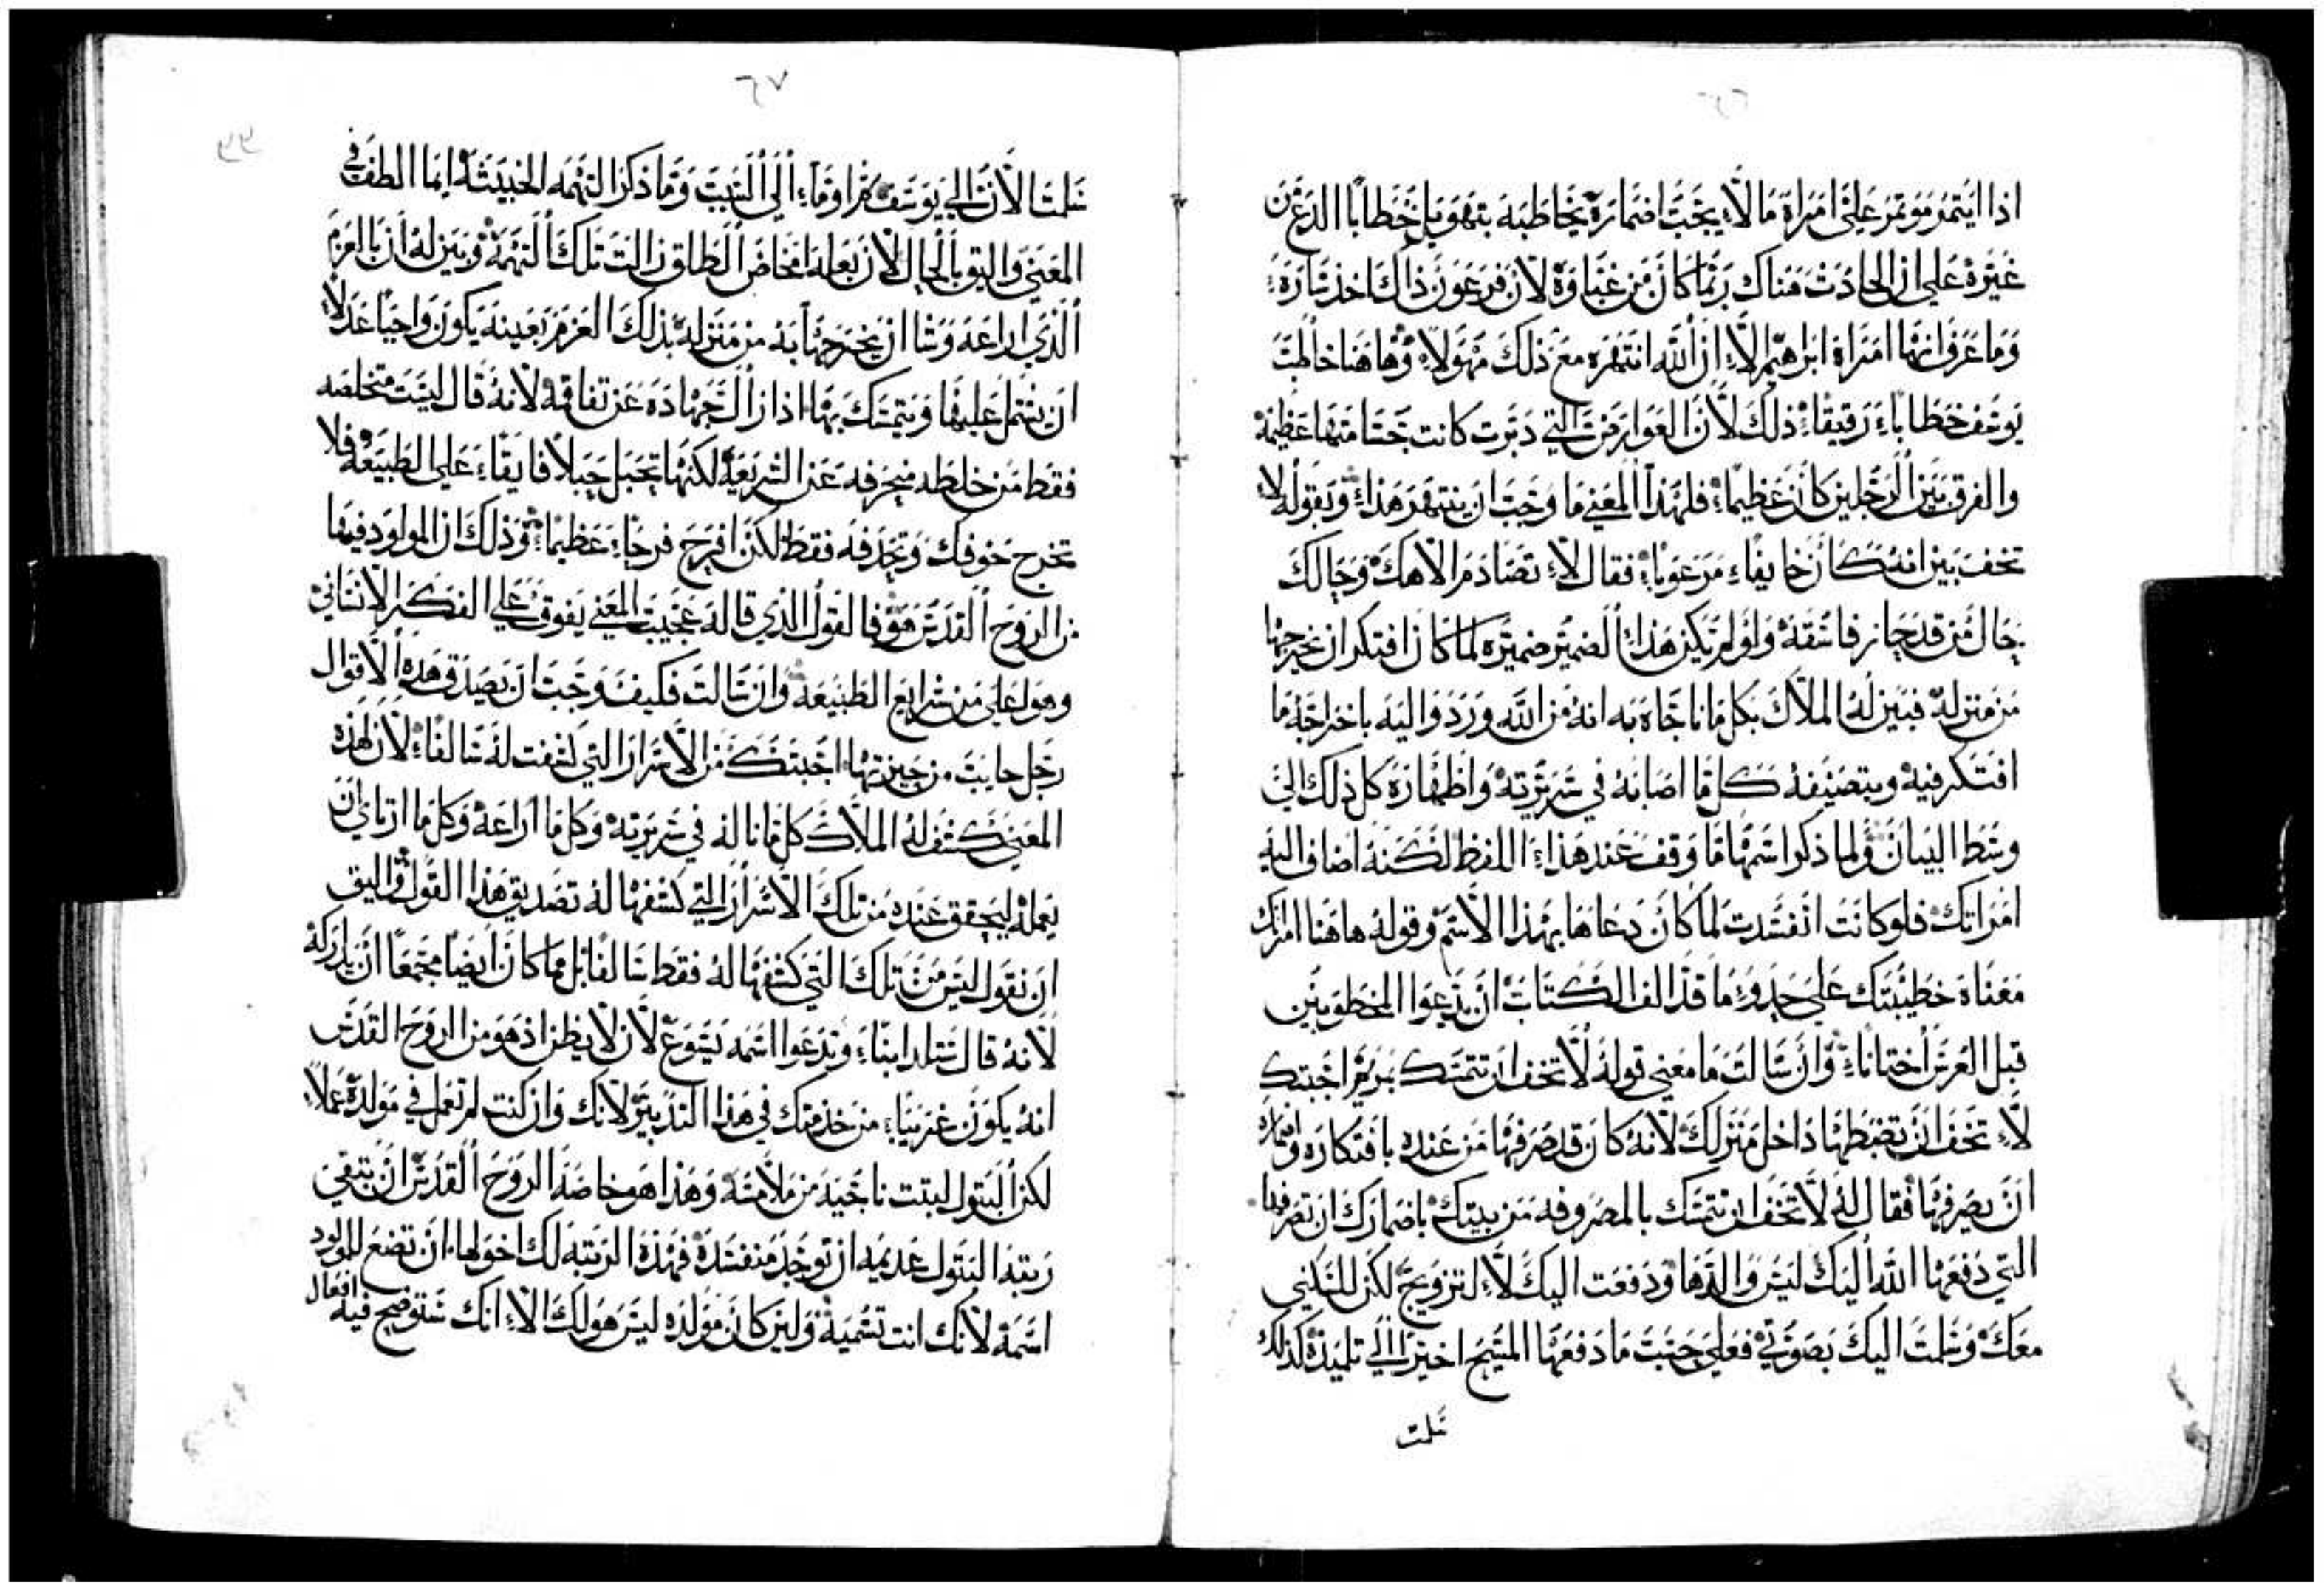 اذا ايتمر موتمر علي امراة ما لا يجب اضماره يخاطبه بتهويل خطابا الذعر من
غيره علي ان الحادث هناك ربما كان من غباوة لان فرعون ذاك اخذ ساره
وما عرف انها امراة ابراهيم الا ان الله انتهره مع ذلك مهولا وهاهنا خاطب
يوسف خطابا رقيقا ذلك لان العوارض التي دبرت كانت جسامتها عظيمة
والفرق بين الرجلين كان عظيما فلهذا المعني ما وجب ان ينتهر هذا وبقوله لا
تخف بين انه كان خايفا مرعوبا فقال لا تصادم الاهك وحالك
حال من قد حاز فاسقه ولو لم يكن هذا الضمير ضميره لما كان افتكر ان يخرجها
من منزله فبين له الملاك بكل ما ناجاه به انه من الله ورد واليه باخراجه ما
افتكر فيه وبتصنيفه كل ما اصابه في سريرته واظهاره كل ذلك الي
وسط البيان ولما ذكر اسمها ما وقف عند هذا اللفظ لكنه اضاف اليه
امراتك فلو كانت انفسدت لما كان دعاها بهذا الاسم وقوله هاهنا امراتك
معناه خطيبتك علي حذو ما قد الف الكتاب ان يدعوا المخطوبين
قبل العرس اختانا وان سالت ما معني قوله لا تخف ان تتمسك بمريم اجبتك
لا تخف ان تضبطها داخل منزلك لانه كان قد صرفها من عنده بافتكاره واضماره
ان يصرفها فقال له لا تخف ان تتمسك بالمصروفه من بيتك باضمارك ان تصرفها
التي دفعها الله اليك ليس والدها ودفعت اليك لا لتزويج لكن للسكني
معك وسلمت اليك بصوتي فعلي حسب ما دفعها المسيح اخيرا الي تلميذه كذلك
سلمت
٦٧
سلمت الان الي يوسف مراوماء الي السبب وما ذكر التهمه الخبيثة انما الطف في
المعني واليق بالحال لان بعله امخاض الطلق زالت تلك التهمة وبين له ان بالعزم
الذي اراعه وشا ان يخرجها به من منزله بذلك العزم بعينه يكون واجبا عدلا
ان يشتمل عليها ويتمسك بها اذا زالت جهاده عن نفاقه لانه قال ليست متخلصه
فقط من خلطه منحرفه عن الشريعه لكنها تحبل حبلا فايقا علي الطبيعه فلا
تخرج خوفك وتحذفه فقط لكن افرح فرحا عظيما وذلك ان المولود فيها
من الروح القدس هو فالقول الذي قاله عجيب المعني يفوق علي الفكر الانساني
وهو اعلي من شرايع الطبيعه وان سالت فكيف وجب ان يصدق هذه الاقوال
رجل خايب من حيرتها اجبتك من الاسرار التي كشفت له سالفا لان لهذه
المعني كشف له الملاك كل ما ناله في سريرته وكل ما اراعه وكل ما ارتاي ان
يعمله ليحقق عنده من تلك الاسرار التي كشفها له تصديق هذا القول واليق
ان نقول ليس من تلك التي كشفها له فقط سالفا بل مما كان ايضا مجتمعا ان يدركه
لانه قال ستلد ابنا وتدعوا اسمه يسوع لان لا يظن اذ هو من الروح القدس
انه يكون غريبا من خدمتك في هذا التدبير لانك وان كنت لم تعمل في مولده عملا
لكن البتول لبثت ناجيه من ملامسه وهذا هو خاصة الروح القدس ان تتقي
رتبة البتول عديمه ان توجد منفسدة فهذه الرتبه لك اخولها ان تضع للمولود
اسمه لانك انت تسميه وليز كان مولده ليس هو لك الا انك ستوضح فيه افعال